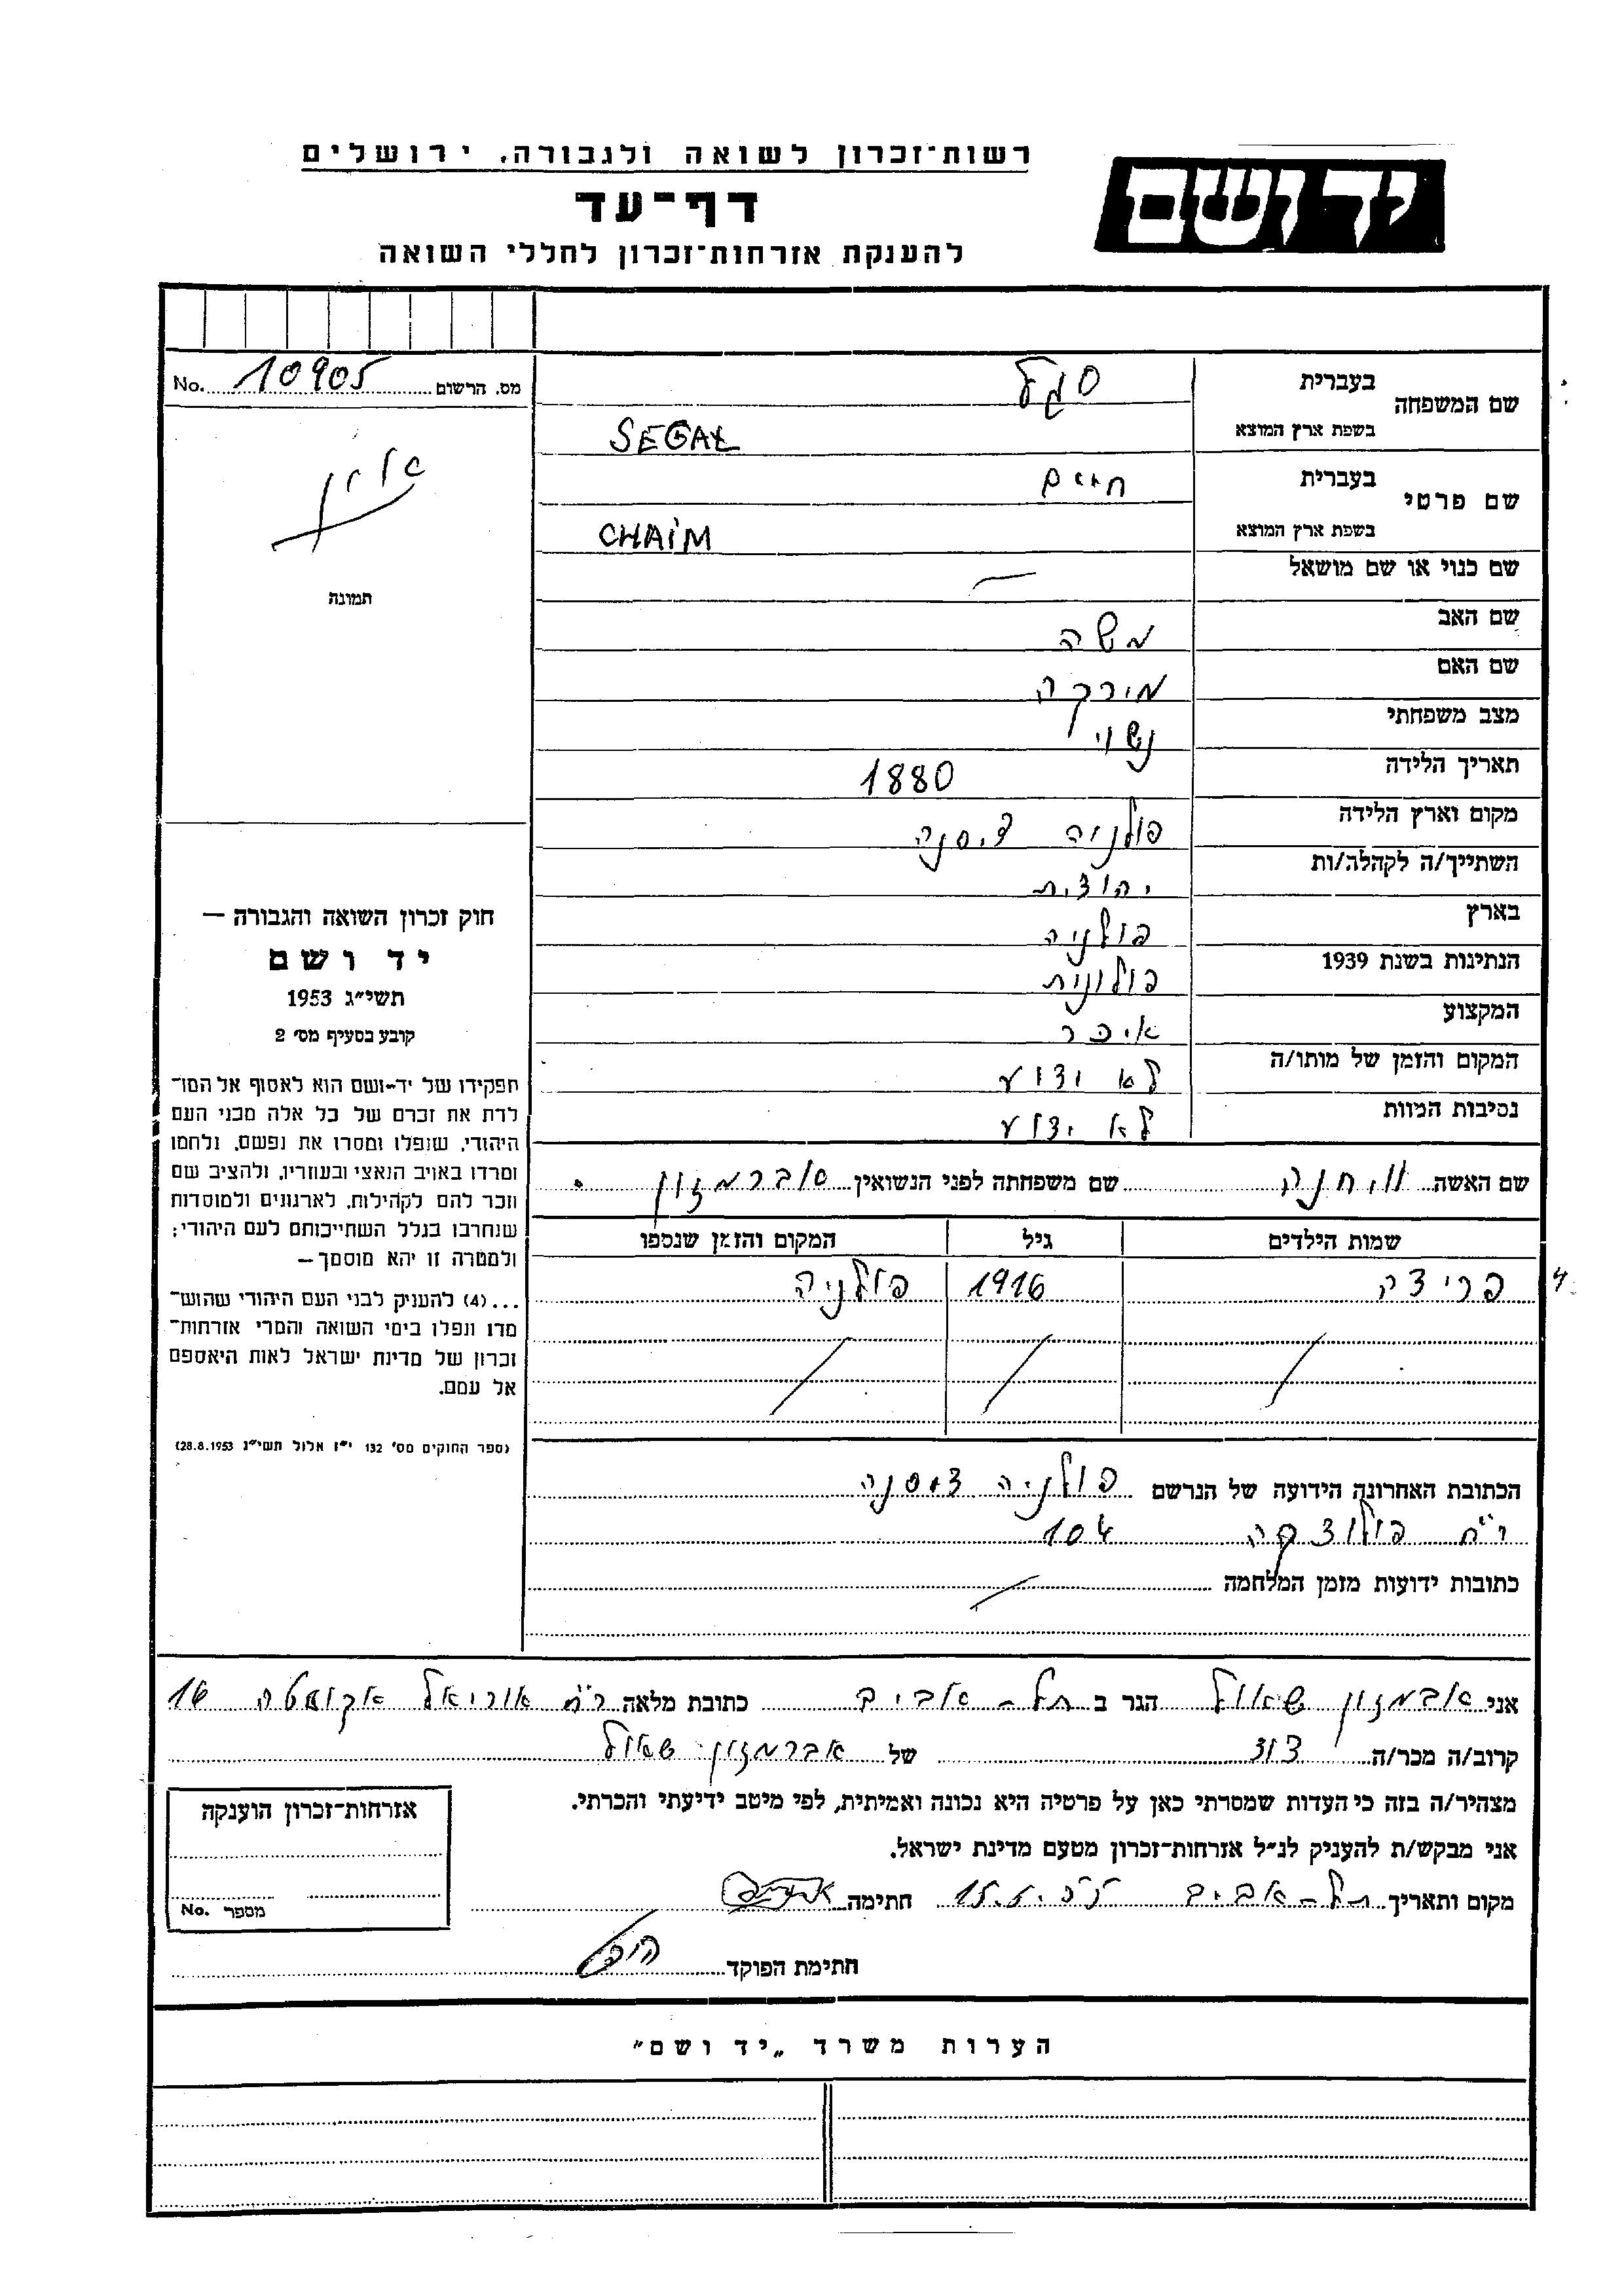 רשות־זכרון לשואה ולגבורה, ירושלים
יד ושם
דף־עד
להענקת אזרחות־זכרון לחללי השואה
מס. הרשום 10905 No.
שם המשפחה בעברית סגל
בשפת ארץ המוצא SEGAŁ
שם פרטי בעברית חיים
בשפת ארץ המוצא CHAIM
תמונה
שם כנוי או שם מושאל —
שם האב משה
שם האם מירקה
מצב משפחתי נשוי
תאריך הלידה 1880
מקום וארץ הלידה פולניה דיסנה
השתייך/ה לקהלה/ות יהודית
בארץ פולניה
הנתינות בשנת 1939 פולונית
המקצוע איכר
המקום והזמן של מותו/ה לא ידוע
נסיבות המוות לא ידוע
חוק זכרון השואה והגבורה —
יד ושם
תשי״ג 1953
קובע בסעיף מס׳ 2
תפקידו של יד־ושם הוא לאסוף אל המו־
לדת את זכרם של כל אלה מבני העם
היהודי, שנפלו ומסרו את נפשם, נלחמו
ומרדו באויב הנאצי ובעוזריו, ולהציב שם
וזכר להם לקהילות, לארגונים ולמוסדות
שנחרבו בגלל השתייכותם לעם היהודי;
ולמטרה זו יהא מוסמך —
...(4) להעניק לבני העם היהודי שהוש־
מדו ונפלו בימי השואה והמרי אזרחות־
זכרון של מדינת ישראל לאות היאספם
אל עמם.
(ספר החוקים מס׳ 132 י״ז אלול תשי״ג 28.8.1953)
שם האשה חנה שם משפחתה לפני הנשואין אברמזון
שמות הילדים גיל המקום והזמן שנספו
פרידה 1916 פולניה
הכתובת האחרונה הידועה של הנרשם פולניה דיסנה
רח פולוצקה 104
כתובות ידועות מזמן המלחמה
אני אבמזון שאול הגר ב תל-אביב כתובת מלאה רח אוריאל אקוסטה 16
קרוב/ה מכר/ה דוד של אברמזון שאול
מצהיר/ה בזה כי העדות שמסרתי כאן על פרטיה היא נכונה ואמיתית, לפי מיטב ידיעתי והכרתי.
אני מבקש/ת להעניק לנ״ל אזרחות־זכרון מטעם מדינת ישראל.
מקום ותאריך תל-אביב חתימה
חתימת הפוקד
אזרחות־זכרון הוענקה
מספר No.
הערות משרד „יד ושם״